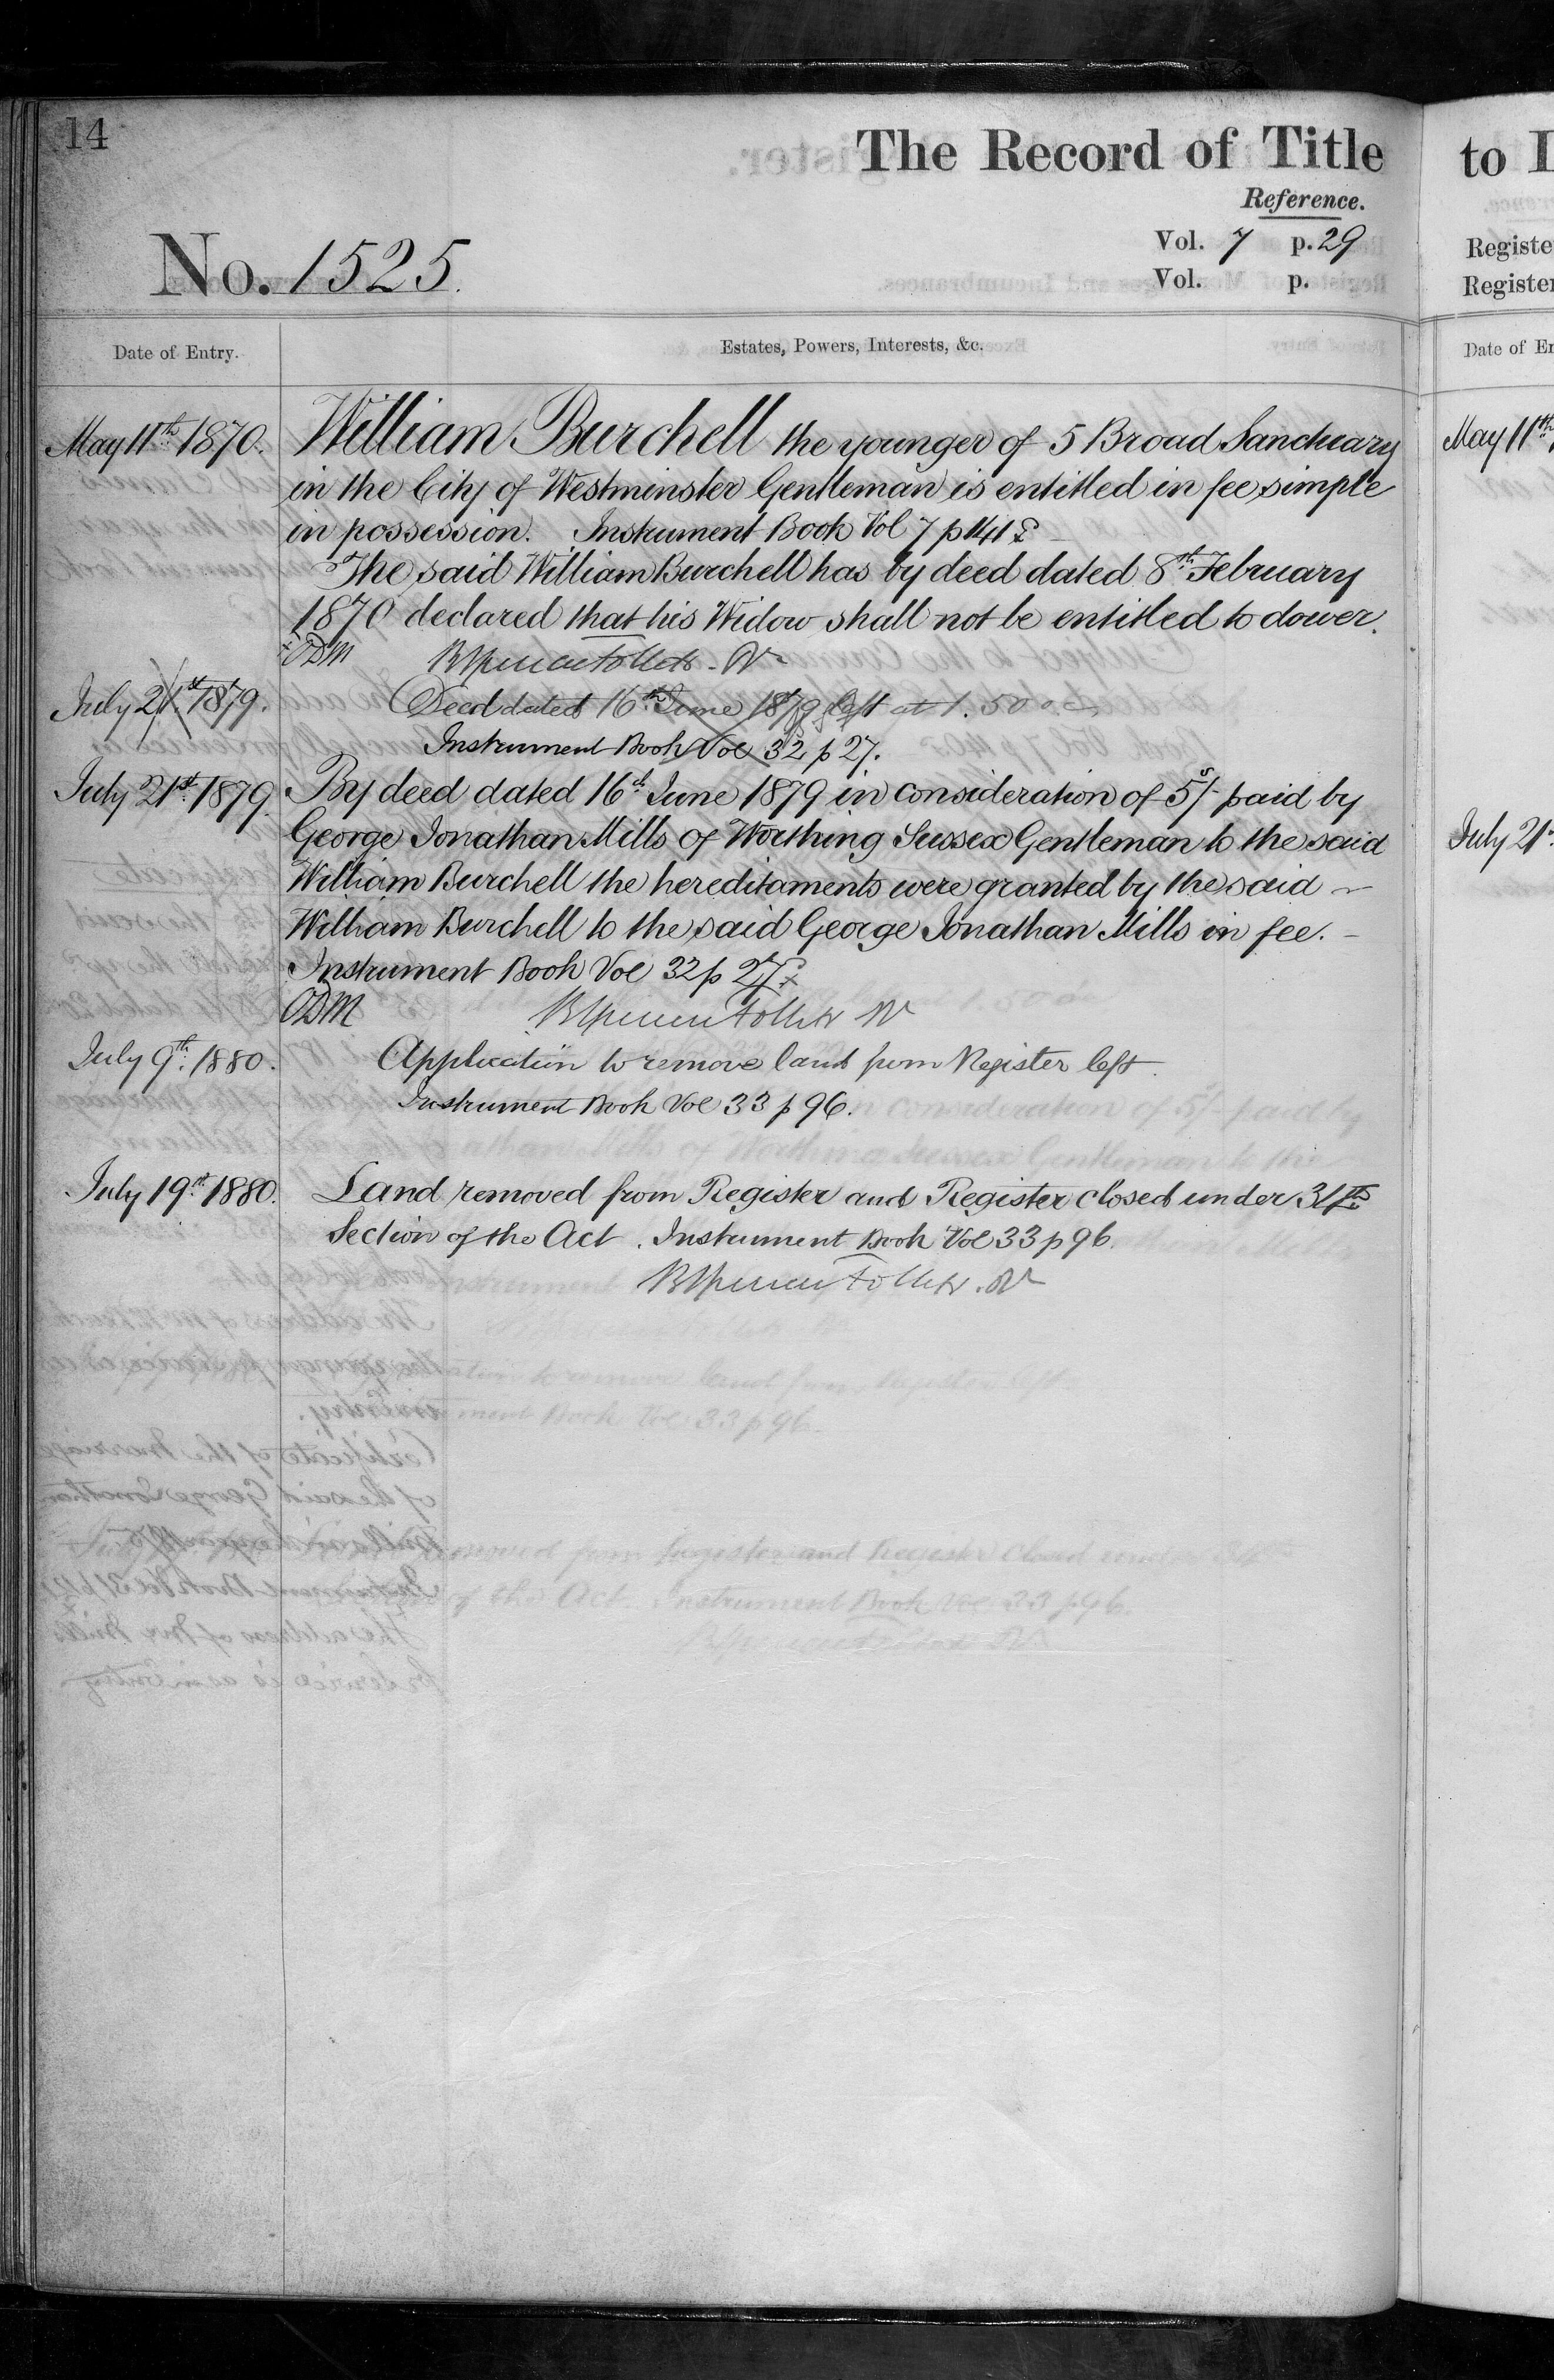 14
The Record of Title
Reference.
No. 1525.
Vol. 7 p. 29
Vol. p.
Date of Entry.
Estates, Powers, Interests, &c.
May 11th 1870.
William Burchell the younger of 5 Broad Sanctuary
in the City of Westminster Gentleman is entitled in fee simple
in possession. Instrument Book Vol 7 p 141
The said William Burchell has by deed dated 8th February
1870 declared that his Widow shall not be entitled to dower.
ODM
July 21st 1879.
Deed dated 16th June 1879 left at 1.50 oc
Instrument Book Vol 32 p 27.
July 21st 1879
By deed dated 16th June 1879 in consideration of 5s/- paid by
George Jonathan Mills of Worthing Sussex Gentleman to the said
William Burchell the hereditaments were granted by the said
William Burchell to the said George Jonathan Mills in fee. -
Instrument Book Vol 32 p 27
ODM
July 9th 1880.
Application to remove land from Register left.
Instrument Book Vol 33 p 96.
July 19th 1880.
Land removed from Register and Register closed under 34th
Section of the Act. Instrument Book Vol 33 p 96.
to
Registe
Register
Date of En
May 11th
July 21